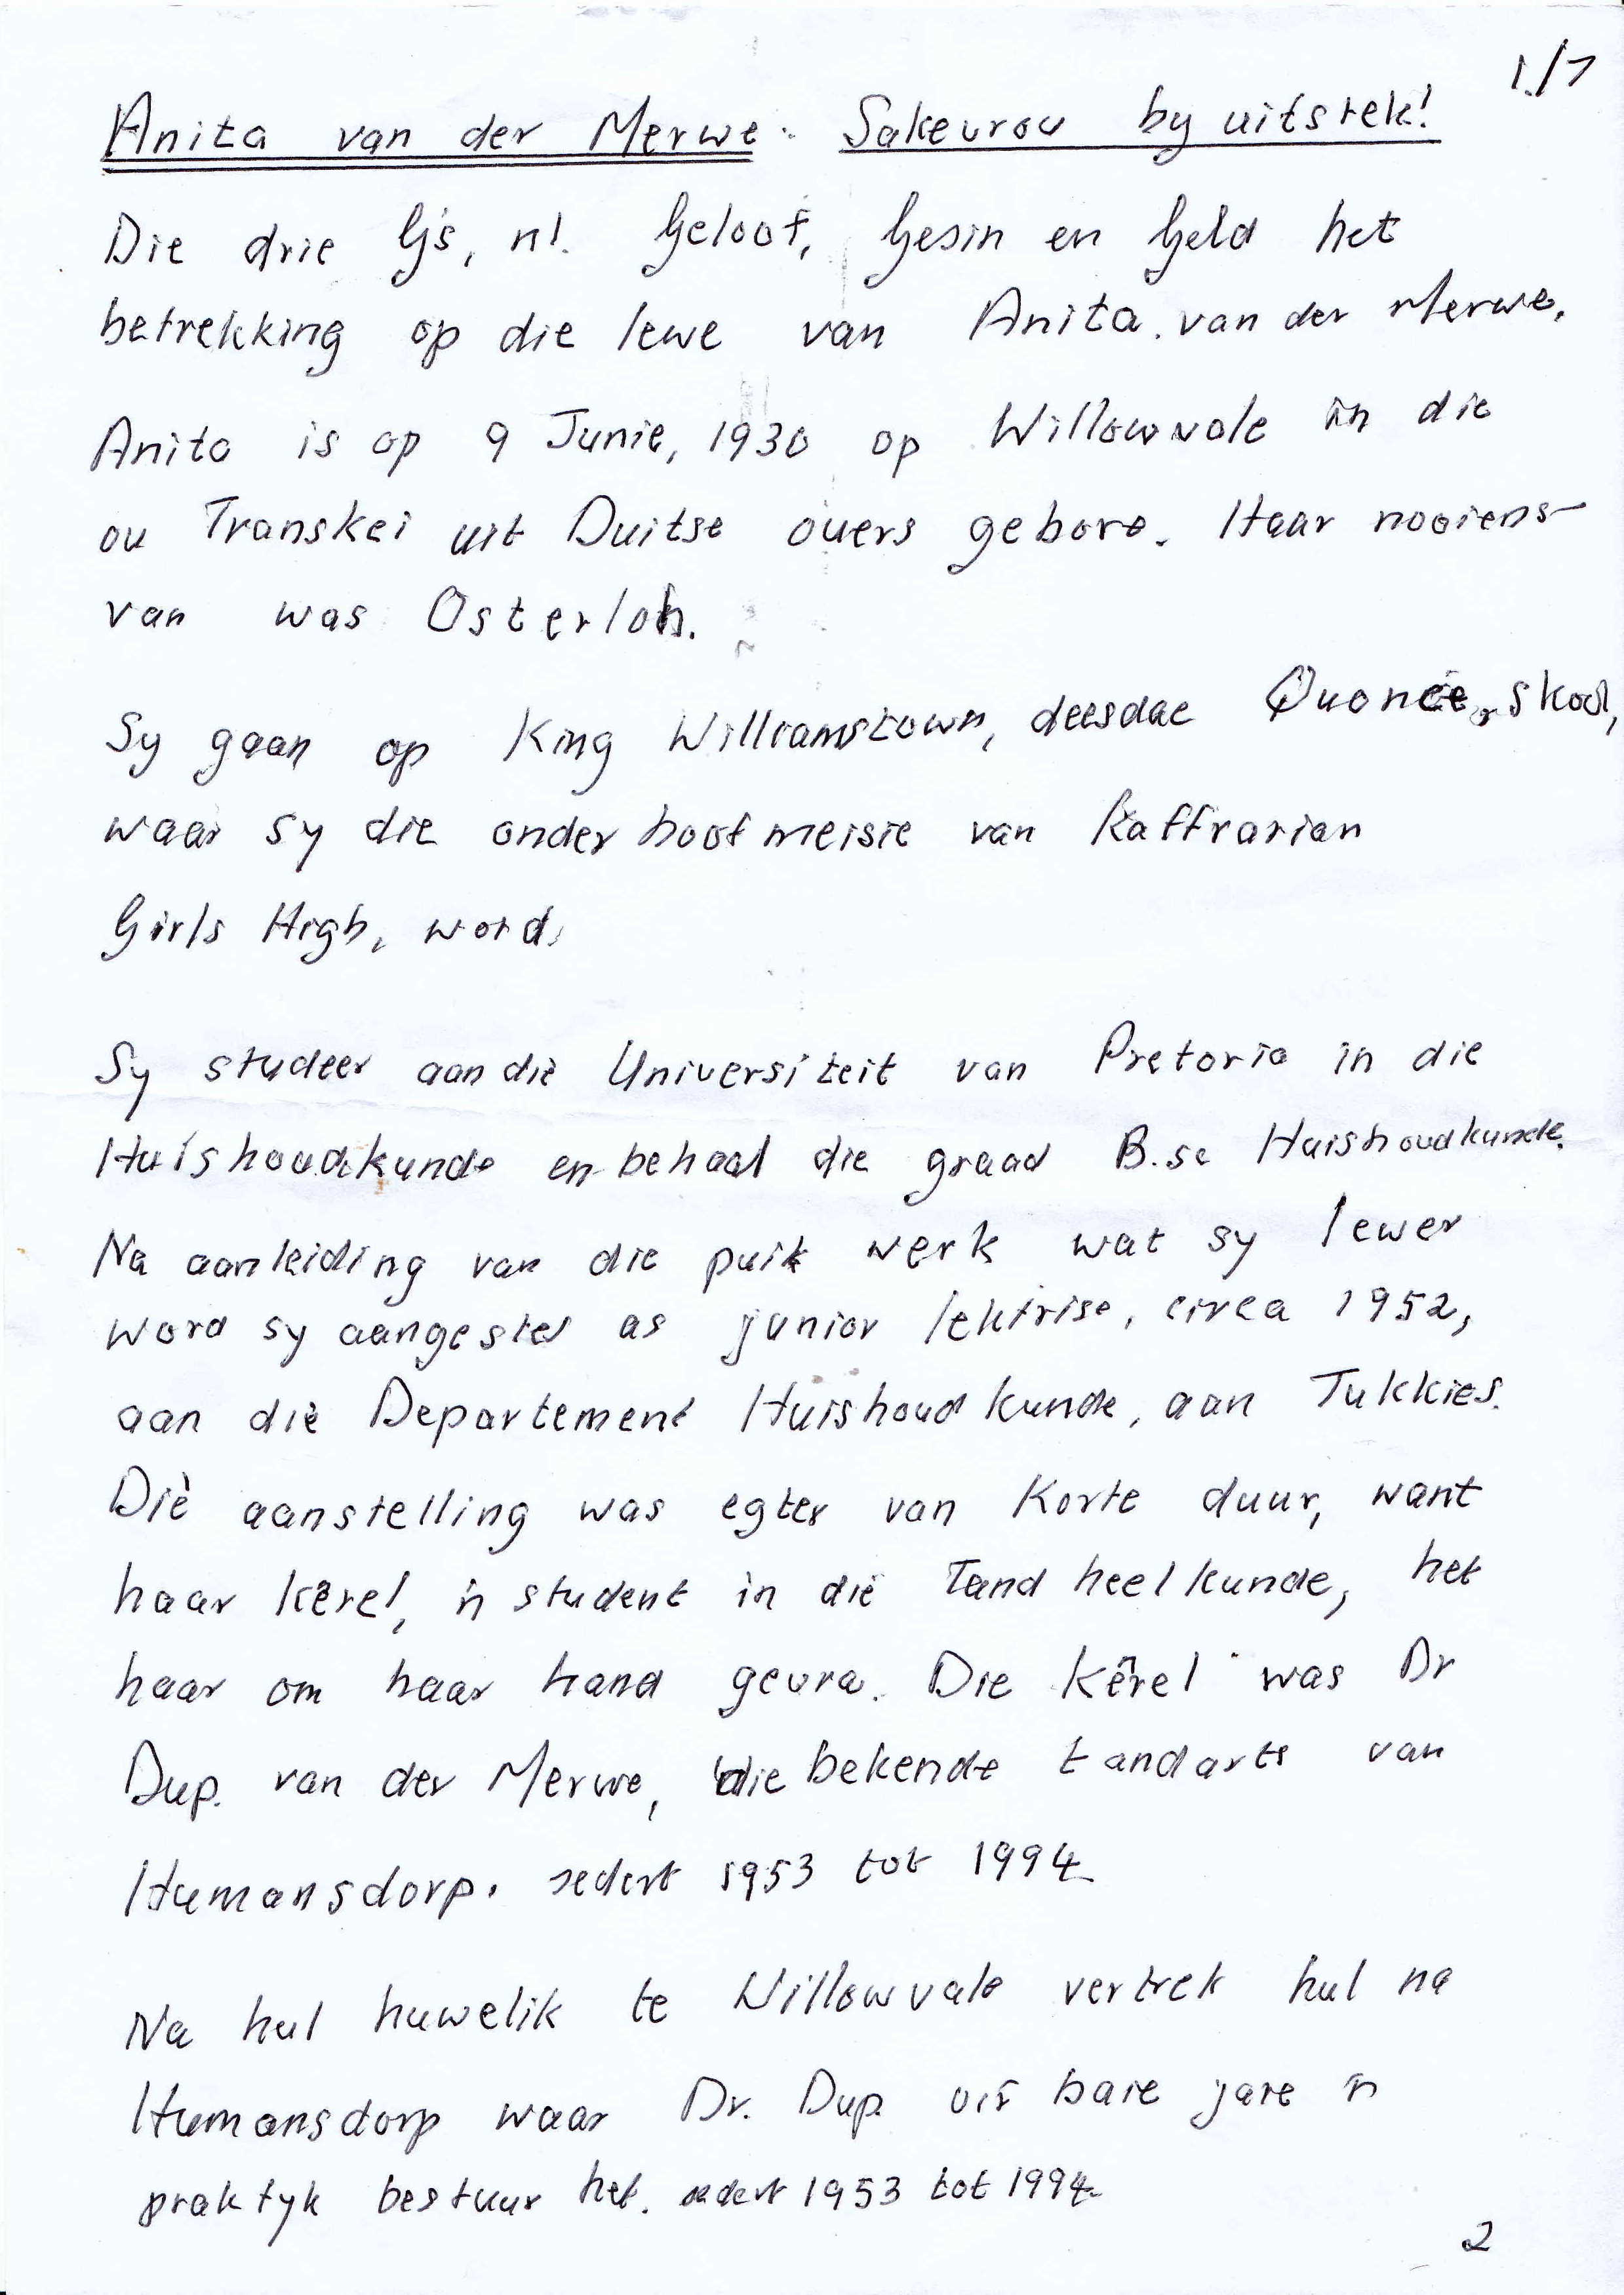 1./1
Anita van der Merwe: Sakevrou by uitstek!
Die drie G's, nl. Geloof, Gesin en Geld het
betrekking op die lewe van Anita van der Merwe.
Anita is op 9 Junie, 1930 op Willowvale in die
ou Transkei uit Duitse ouers gebore. Haar nooiens-
van was Osterloh.
Sy gaan op King Williamstown, deesdae Quonce, skool,
waar sy die onderhoofmeisie van Kaffrarian
Girls High, word.
Sy studeer aan die Universiteit van Pretoria in die
Huishoudkunde en behaal die graad B.sc Huishoudkunde.
Na aanleiding van die puik werk wat sy lewer
word sy aangestel as junior lektrise, circa 1952,
aan die Departement Huishoudkunde, aan Tukkies.
Diè aanstelling was egter van korte duur, want
haar kêrel, 'n student in die Tandheelkunde, het
haar om haar hand gevra. Die kêrel was Dr
Dup. van der Merwe, die bekende tandarts van
Humansdorp. sedert 1953 tot 1994
Na hul huwelik te Willowvale vertrek hul na
Humansdorp waar Dr. Dup. vir baie jare 'n
praktyk bestuur het. sedert 1953 tot 1994
2